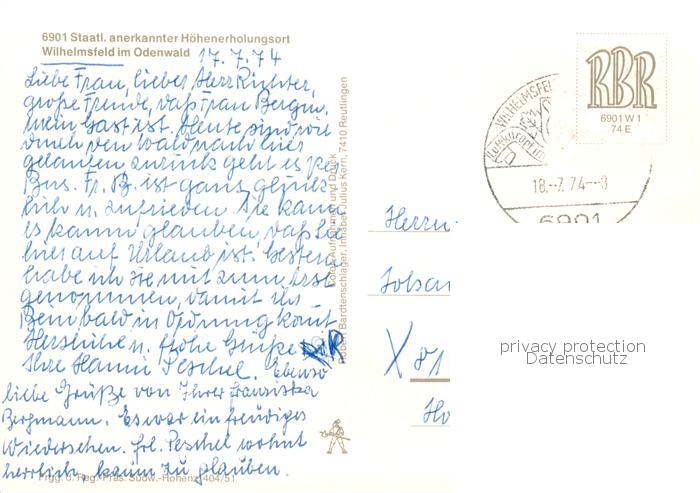 6901 Staatl. anerkannter Höhenerholungsort
Wilhelmsfeld im Odenwald 17.7.74
Liebe Frau, lieber Herr Richter,
große Freude, daß Frau Bergm.
mein Gast ist. Heute sind wir
durch den Wald nach hier
gelaufen zurück geht es per
Bus. Fr. B. ist ganz glück-
lich u. zufrieden. Sie kann
es kaum glauben, daß Sie
hier auf Urlaub ist. Gestern
habe ich Sie mit zum Arzt
genommen, damit ihr
Bein bald in Ordnung kommt
Herzlichen u. frohe Grüße
Ihre Hanni Peschel. Ebenso
liebe Grüße von Ihrer Franziska
Bergmann. Es war ein freudiges
Wiedersehen. Frl. Peschel wohnt
herrlich, kaum zu glauben.
Frgg. d. Reg.-Präs. Südw.-Hohenz. 404/51
Color-Aufnahme und Druck
Bardtenschlager, Inhaber Julius Kern, 7410 Reutlingen
RBR
6901 W 1
74 E
WILHELMSFE
18.-7.74--3
6901
Herrn
X 81
privacy protection
Datenschutz